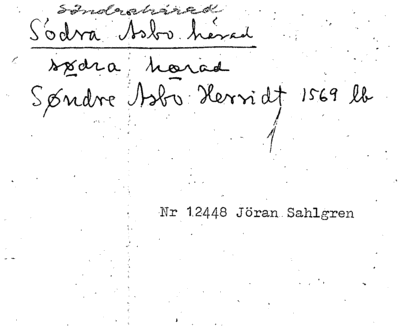 Söndrahärad
Södra Asbo härad
sødra hærad
Søndre Asbo Herridt 1569 lb
Nr 12448 Jöran Sahlgren